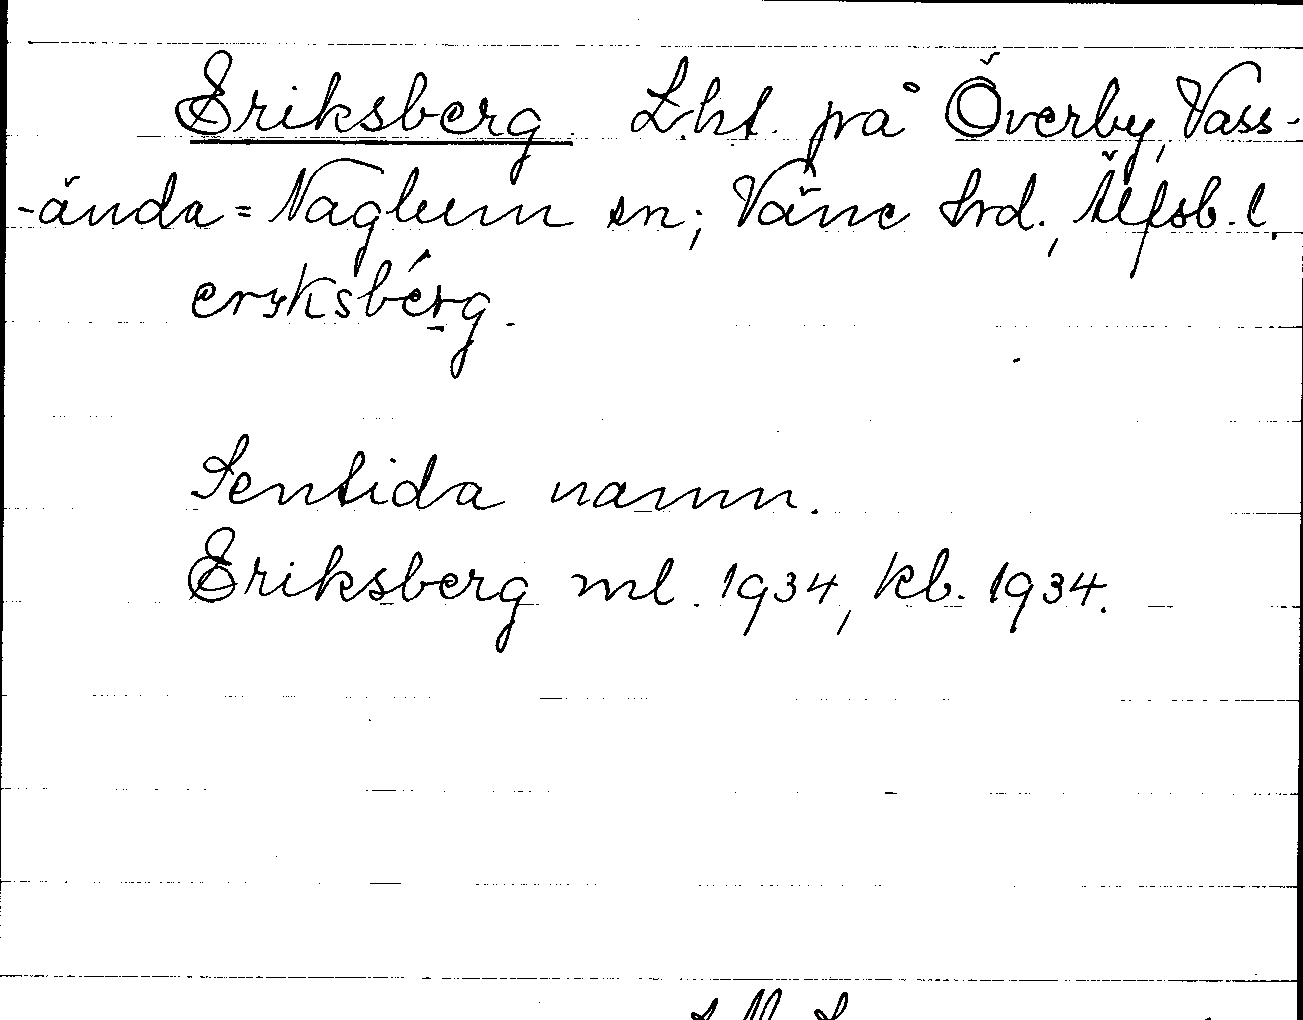 Eriksberg L.ht. på Överby, Vass-
-ända=Naglum sn; Väne hrd., Älfsb. l.
erıksbérg.
Sentida namn.
Eriksberg ml. 1934, kb. 1934.